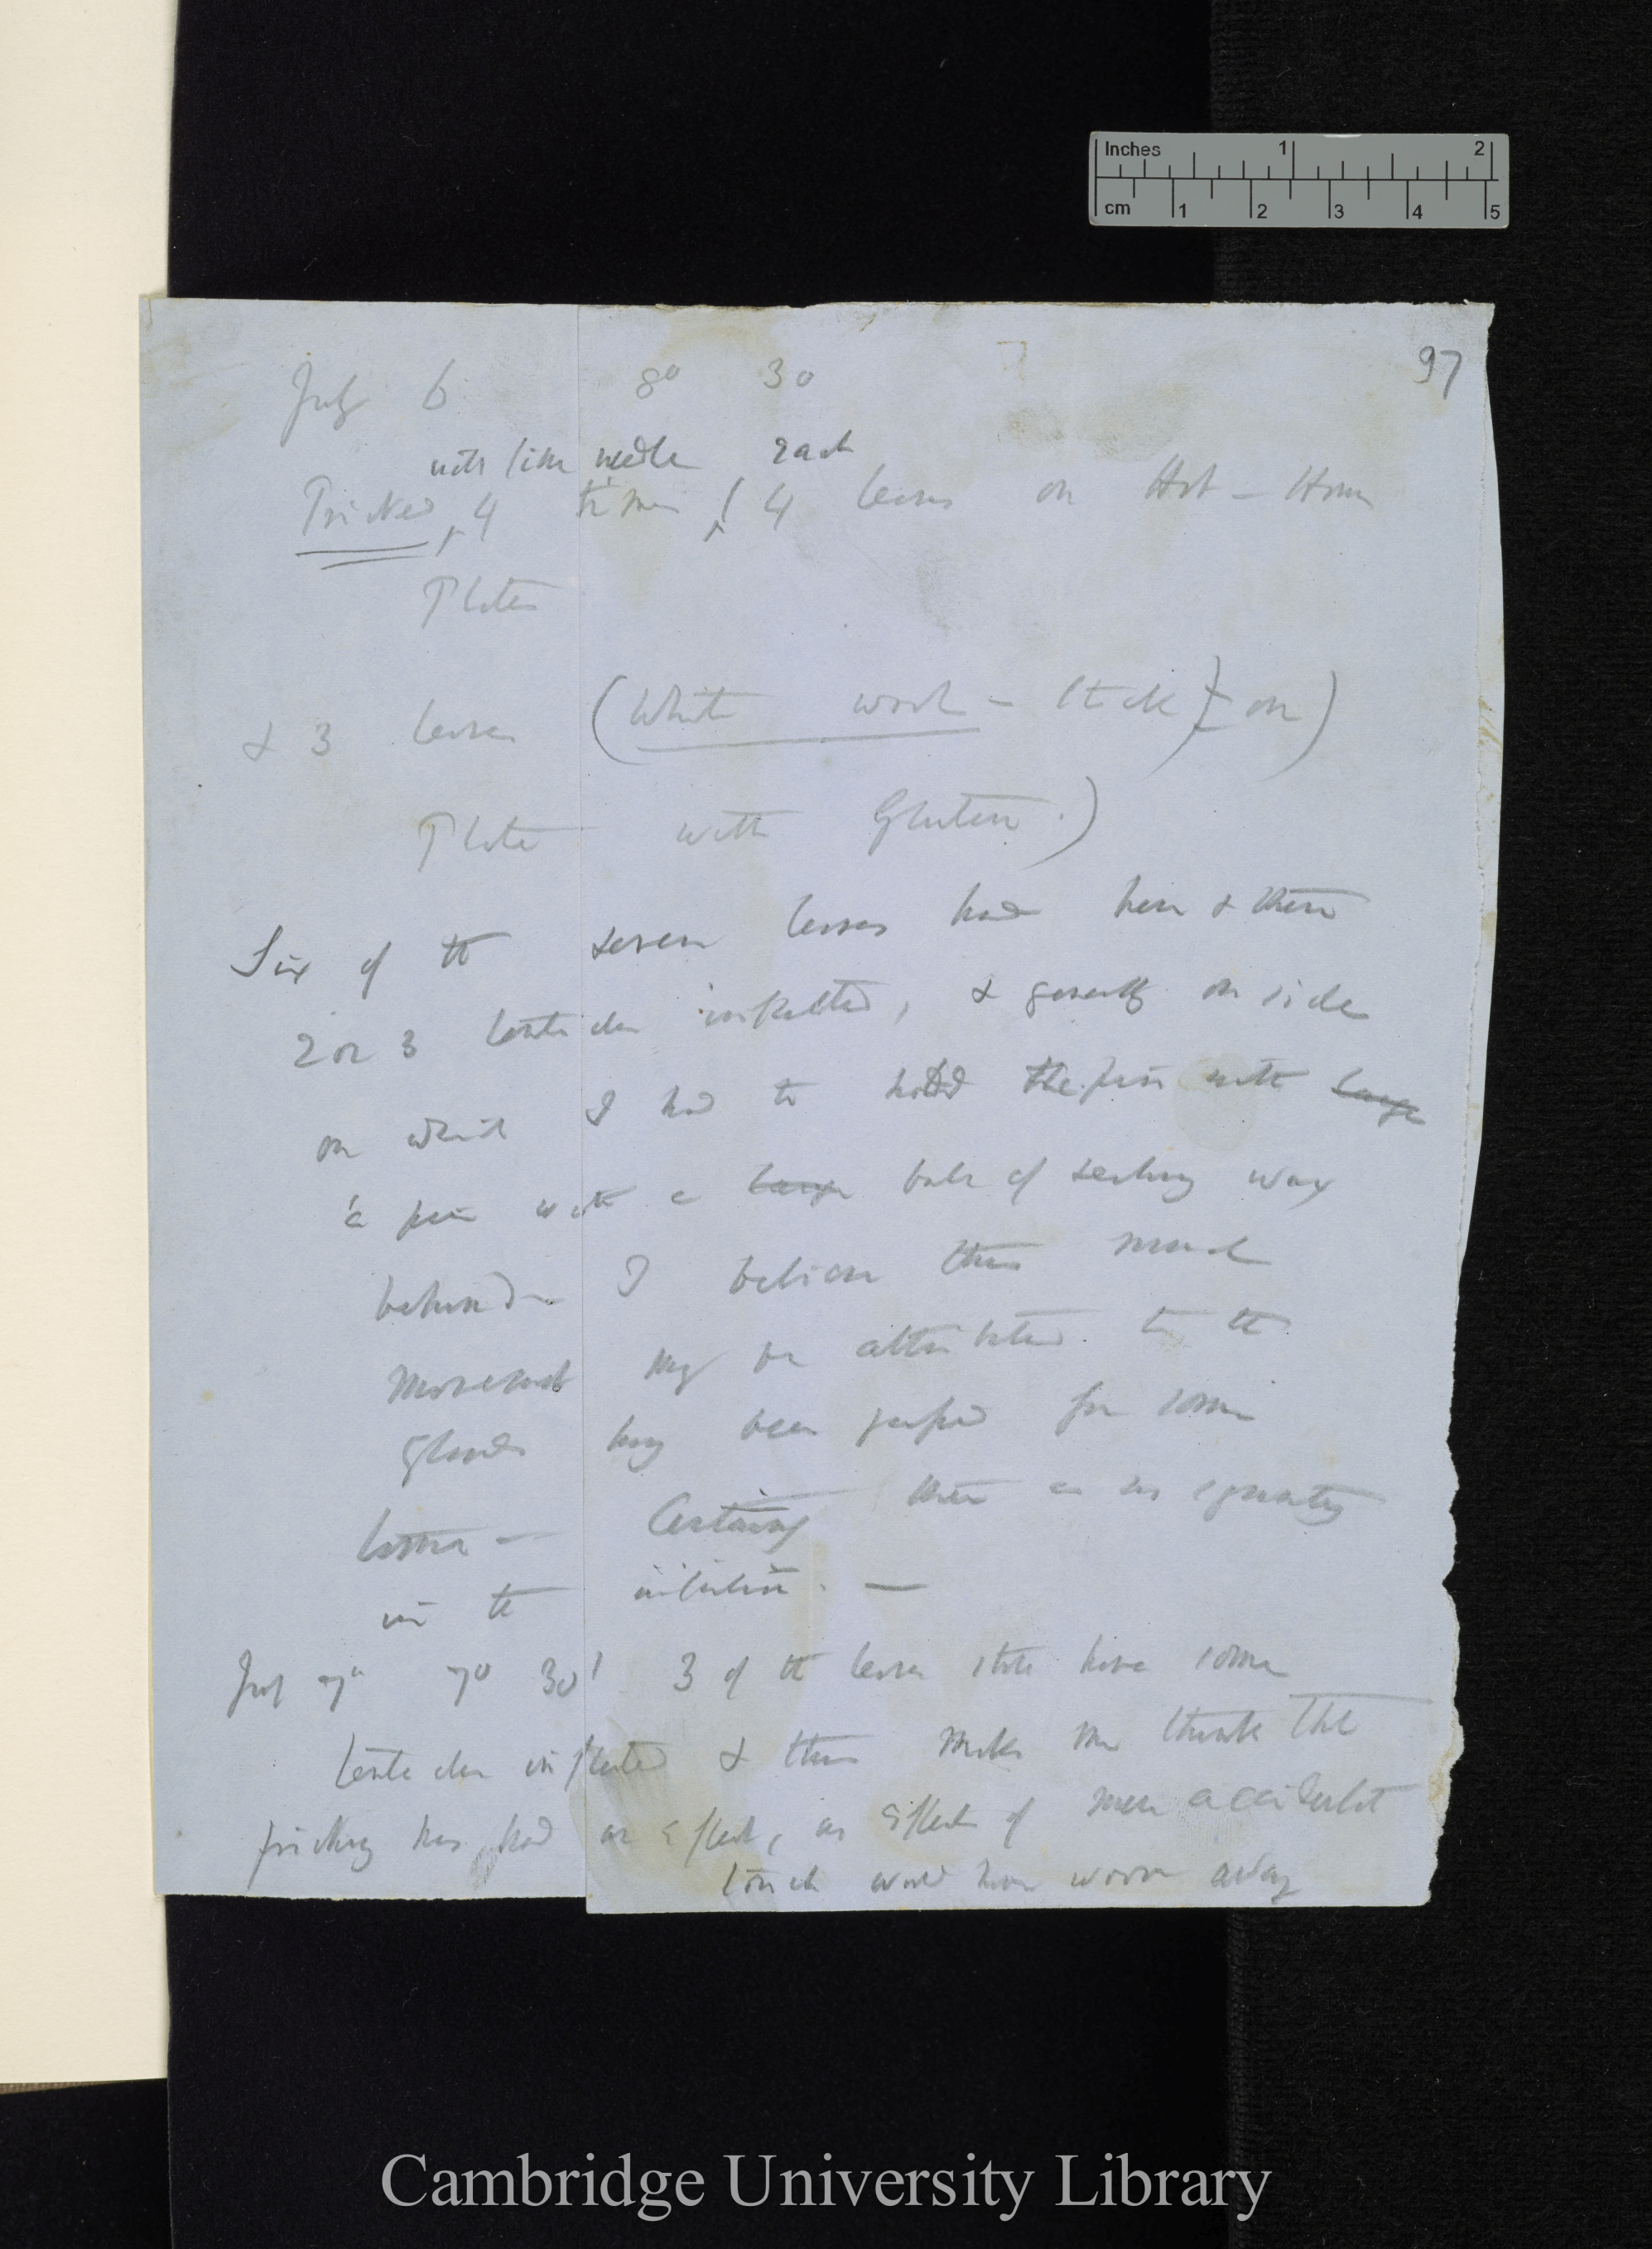 Inches 1 2
cm 1 2 3 4 5
97
July 6 8° 30
with fine needle each
Pricked 4 times 4 leaves on Hot-House
Plates
& 3 leaves (White wool-stick on)
Plate with Gluten.)
Six of the seven leaves had here & there
2 or 3 tentacles inflected, & generally on side
on which I had to hold the pin with large
a pin with a large ball of sealing wax
behind — I believe this
movement may be attributed to the
glands having been for some
time — Certainly there is no
in the inflection. —
July 7° 7° 30' 3 of the leaves still have some
tentacles inflected & this makes me think the
pricking has had an effect, as effect of mere accidental
touch would have worn away
Cambridge University Library